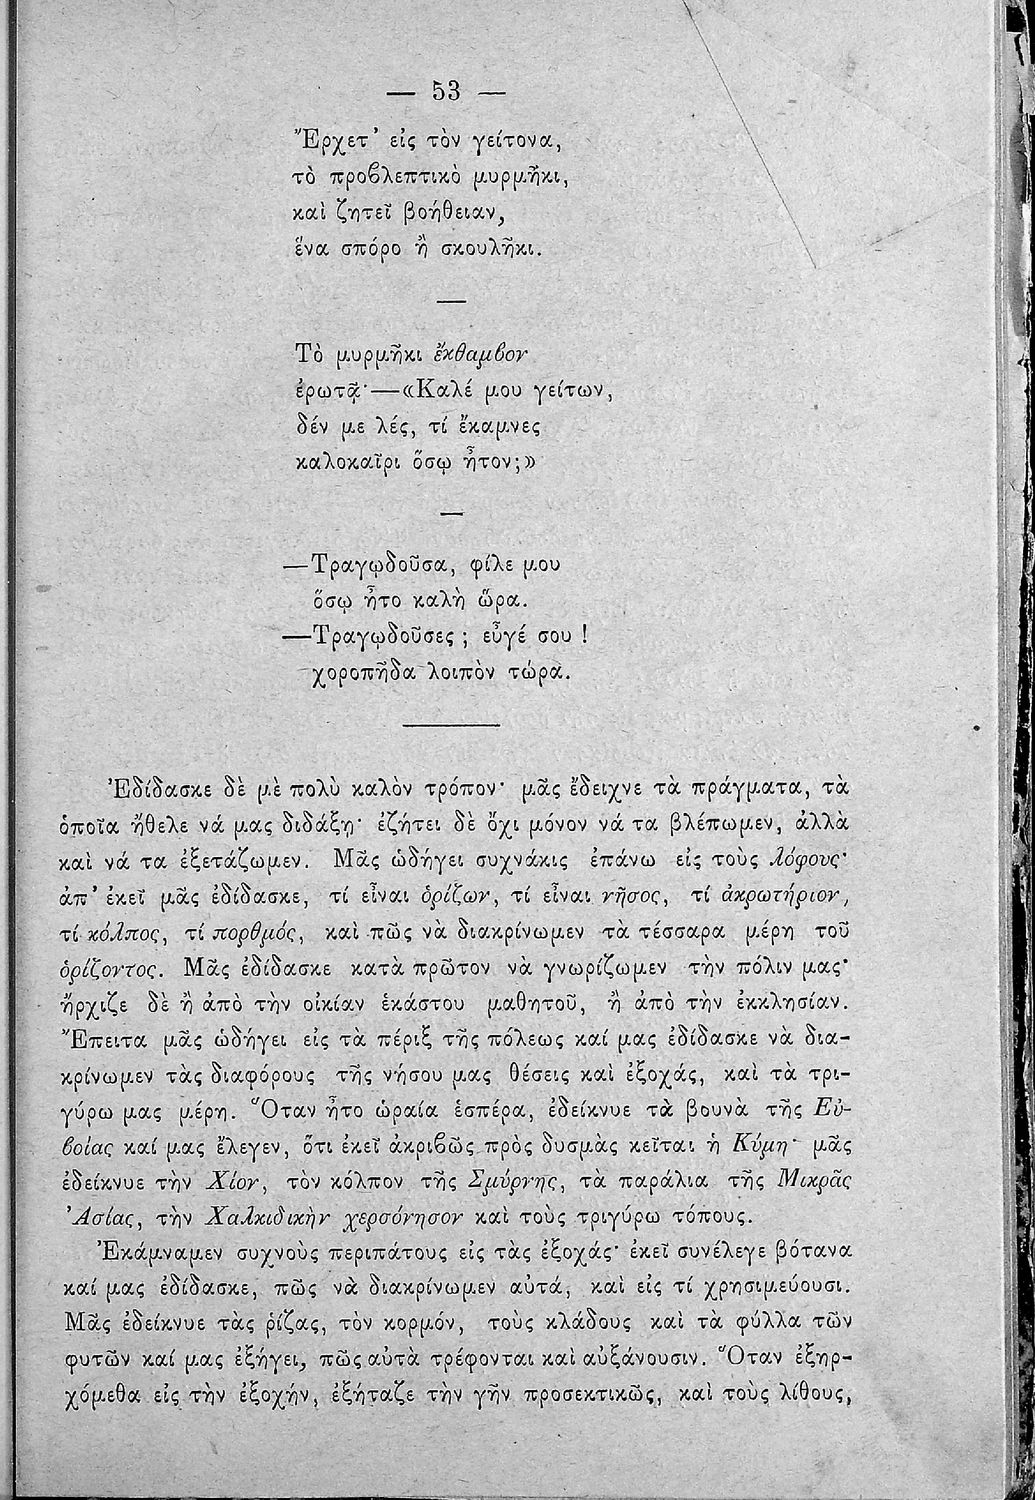 — 53 —
Ἔρχετ’ εἰς τὸν γείτονα,
τὸ προβλεπτικὸ μυρμῆκι,
καὶ ζητεῖ βοήθειαν,
ἕνα σπόρο ἢ σκουλῆκι.
—
Τὸ μυρμῆκι ἔκθαμβον
ἐρωτᾷ·—«Καλέ μου γείτων,
δέν με λές, τί ἔκαμνες
καλοκαῖρι ὅσῳ ἦτον;»
—
—Τραγῳδοῦσα, φίλε μου
ὅσῳ ἦτο καλὴ ὥρα.
—Τραγῳδοῦσες ; εὖγέ σου !
χοροπῆδα λοιπὸν τώρα.
Ἐδίδασκε δὲ μὲ πολὺ καλὸν τρόπον· μᾶς ἔδειχνε τὰ πράγματα, τὰ
ὁποῖα ἤθελε νά μας διδάξῃ· ἐζήτει δὲ ὄχι μόνον νά τα βλέπωμεν, ἀλλὰ
καὶ νά τα ἐξετάζωμεν. Μᾶς ὡδήγει συχνάκις ἐπάνω εἰς τοὺς λόφους·
ἀπ’ ἐκεῖ μᾶς ἐδίδασκε, τί εἶναι ὁρίζων, τί εἶναι νῆσος, τί ἀκρωτήριον,
τί κόλπος, τί πορθμός, καὶ πῶς νὰ διακρίνωμεν τὰ τέσσαρα μέρη τοῦ
ὁρίζοντος. Μᾶς ἐδίδασκε κατὰ πρῶτον νὰ γνωρίζωμεν τὴν πόλιν μας·
ἤρχιζε δὲ ἢ ἀπὸ τὴν οἰκίαν ἑκάστου μαθητοῦ, ἢ ἀπὸ τὴν ἐκκλησίαν.
Ἔπειτα μᾶς ὡδήγει εἰς τὰ πέριξ τῆς πόλεως καί μας ἐδίδασκε νὰ δια-
κρίνωμεν τὰς διαφόρους τῆς νήσου μας θέσεις καὶ ἐξοχάς, καὶ τὰ τρι-
γύρω μας μέρη. Ὅταν ἦτο ὡραία ἑσπέρα, ἐδείκνυε τὰ βουνὰ τῆς Εὐ-
βοίας καί μας ἔλεγεν, ὅτι ἐκεῖ ἀκριβῶς πρὸς δυσμὰς κεῖται ἡ Κύμη· μᾶς
ἐδείκνυε τὴν Χίον, τὸν κόλπον τῆς Σμύρνης, τὰ παράλια τῆς Μικρᾶς
Ἀσίας, τὴν Χαλκιδικὴν χερσόνησον καὶ τοὺς τριγύρω τόπους.
Ἐκάμναμεν συχνοὺς περιπάτους εἰς τὰς ἐξοχάς· ἐκεῖ συνέλεγε βότανα
καί μας ἐδίδασκε, πῶς νὰ διακρίνωμεν αὐτά, καὶ εἰς τί χρησιμεύουσι.
Μᾶς ἐδείκνυε τὰς ῥίζας, τὸν κορμόν, τοὺς κλάδους καὶ τὰ φύλλα τῶν
φυτῶν καί μας ἐξήγει, πῶς αὐτὰ τρέφονται καὶ αὐξάνουσιν. Ὅταν ἐξηρ-
χόμεθα εἰς τὴν ἐξοχήν, ἐξήταζε τὴν γῆν προσεκτικῶς, καὶ τοὺς λίθους,